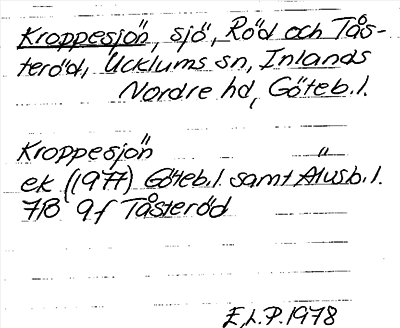 Kroppesjön, sjö, Röd och Tås-
teröd, Ucklums sn, Inlands
Nordre hd, Göteb.l.
Kroppesjön "
ek (1977) Göteb.l. samt Älvsb.l.
7B 9f Tåsteröd
E.L.P. 1978